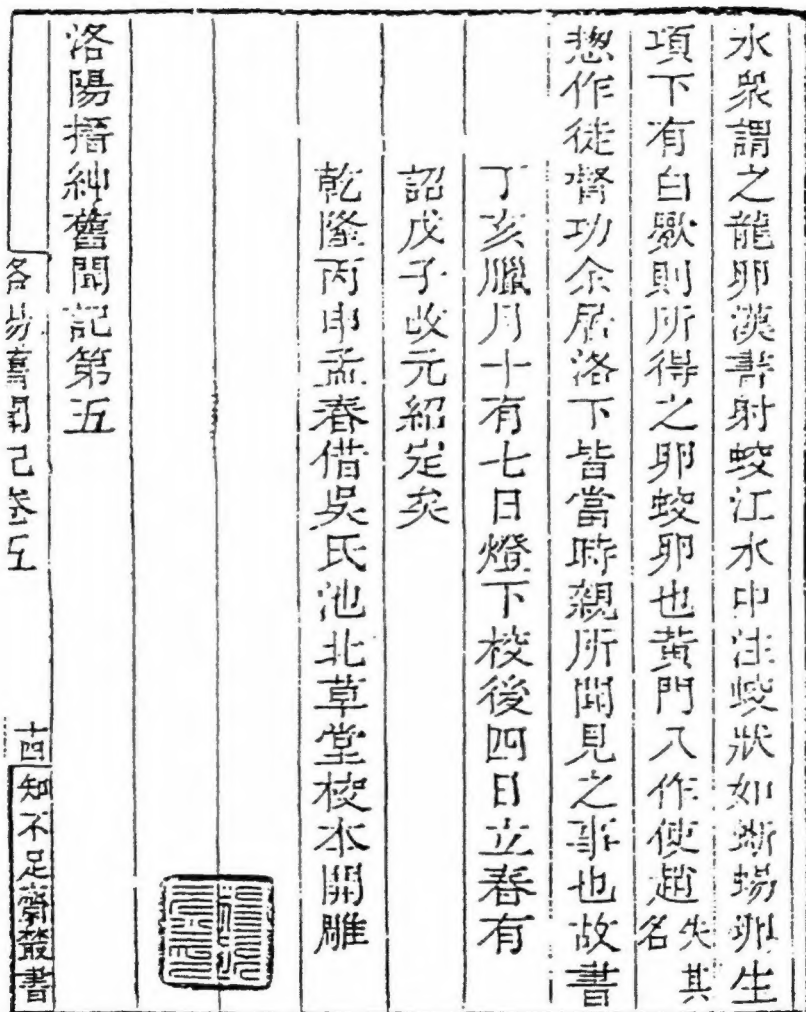 水衆謂之龍卵漢書射蛟江水中注蛟狀如蜥蜴卵生
項下有白嬰則所得之卵蛟卵也黃門八作使趙失其名
怱作徒督功余居洛下皆當時親所聞見之事也故書
丁亥臘月十有七日燈下校後四日立春有
詔戊子改元紹定矣
乾隆丙申孟春借吳氏池北草堂校本開雕
洛陽搢紳舊聞記第五
洛陽舊聞記卷五
十四
知不足齋叢書